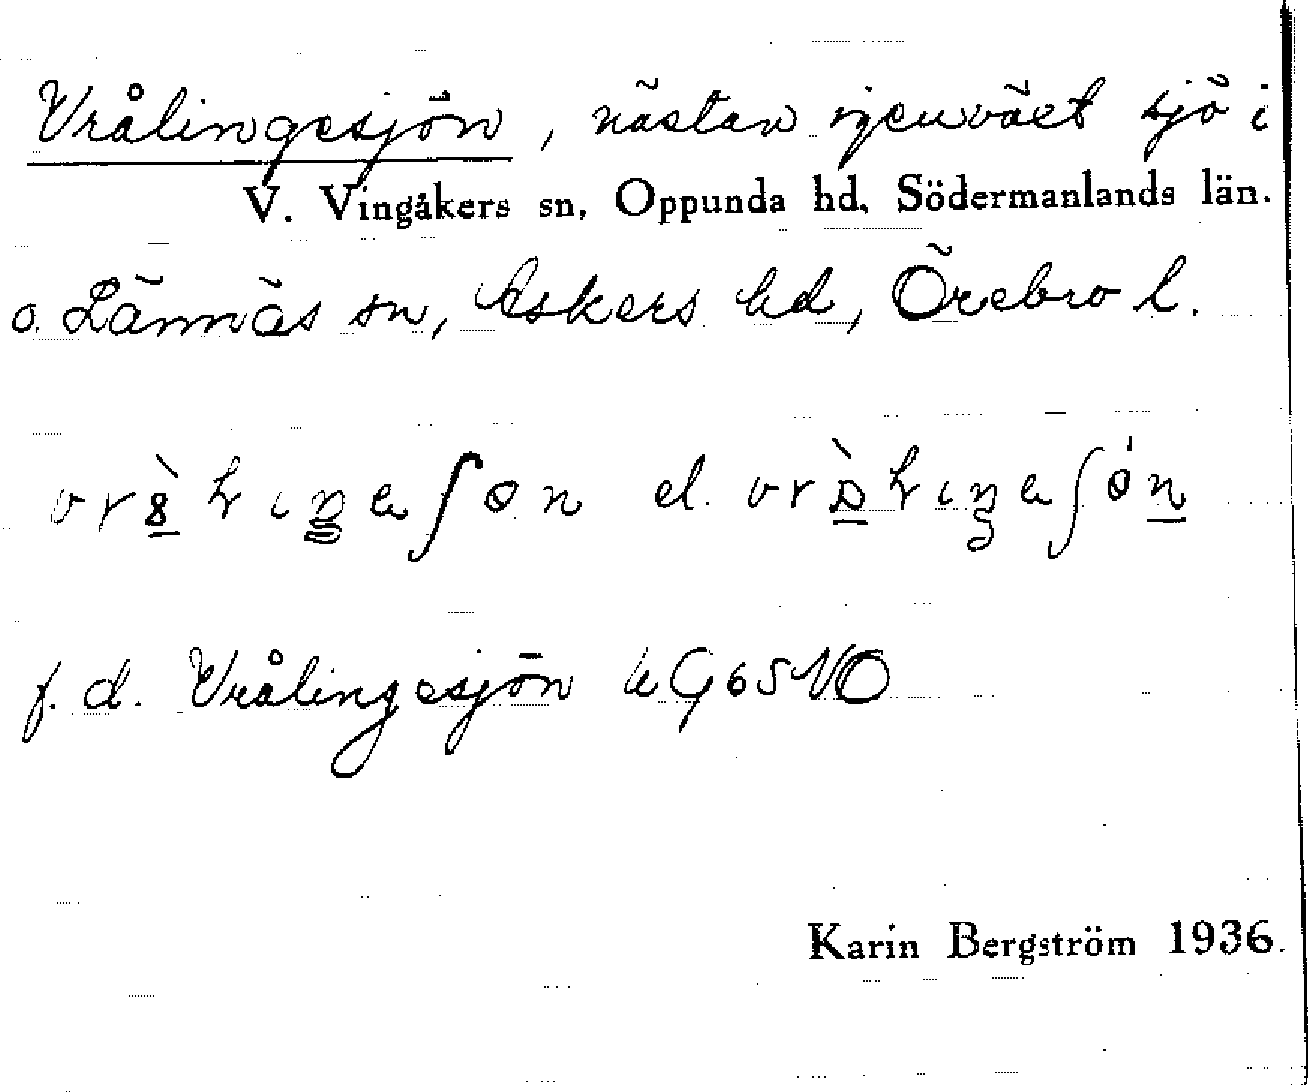 Vrålingesjön, nästan igenväxt sjö i
V. Vingåkers sn, Oppunda hd, Södermanlands län.
o. Lännäs sn, Askers hd, Örebro l.
el.
f. d. Vrålingesjön kG65NO
Karin Bergström 1936.